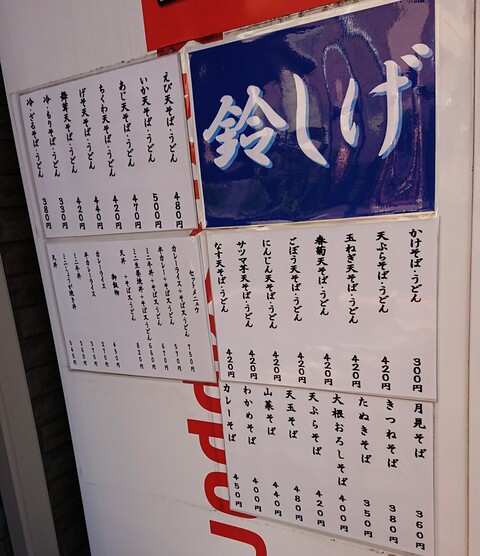 鈴しげ
えび天そば・うどん 480円
いか天そば・うどん 500円
あじ天そば・うどん 470円
ちくわ天そば・うどん 420円
げそ天そば・うどん 440円
舞茸天そば・うどん 420円
冷・もりそば・うどん 330円
冷・ざるそば・うどん 380円
かけそば・うどん 300円
天ぷらそば・うどん 420円
玉ねぎ天そば・うどん 420円
春菊天そば・うどん 420円
ごぼう天そば・うどん 420円
にんじん天そば・うどん 420円
サツマ芋天そば・うどん 420円
なす天そば・うどん 420円
セットメニュウ
カレーライス+そば又うどん 750円
半カレー+そば又うどん 570円
ミニ牛丼+そば又うどん 670円
ミニ生姜焼丼+そば又うどん 660円
天丼+そば又うどん 820円
御飯物
カレーライス 450円
半カレーライス 270円
ミニ牛丼 370円
ミニしょうが焼き丼 360円
天丼 540円
月見そば 360円
きつねそば 380円
たぬきそば 350円
大根おろしそば 400円
天ぷらそば 420円
天玉そば 480円
山菜そば 440円
わかめそば 400円
カレーそば 450円